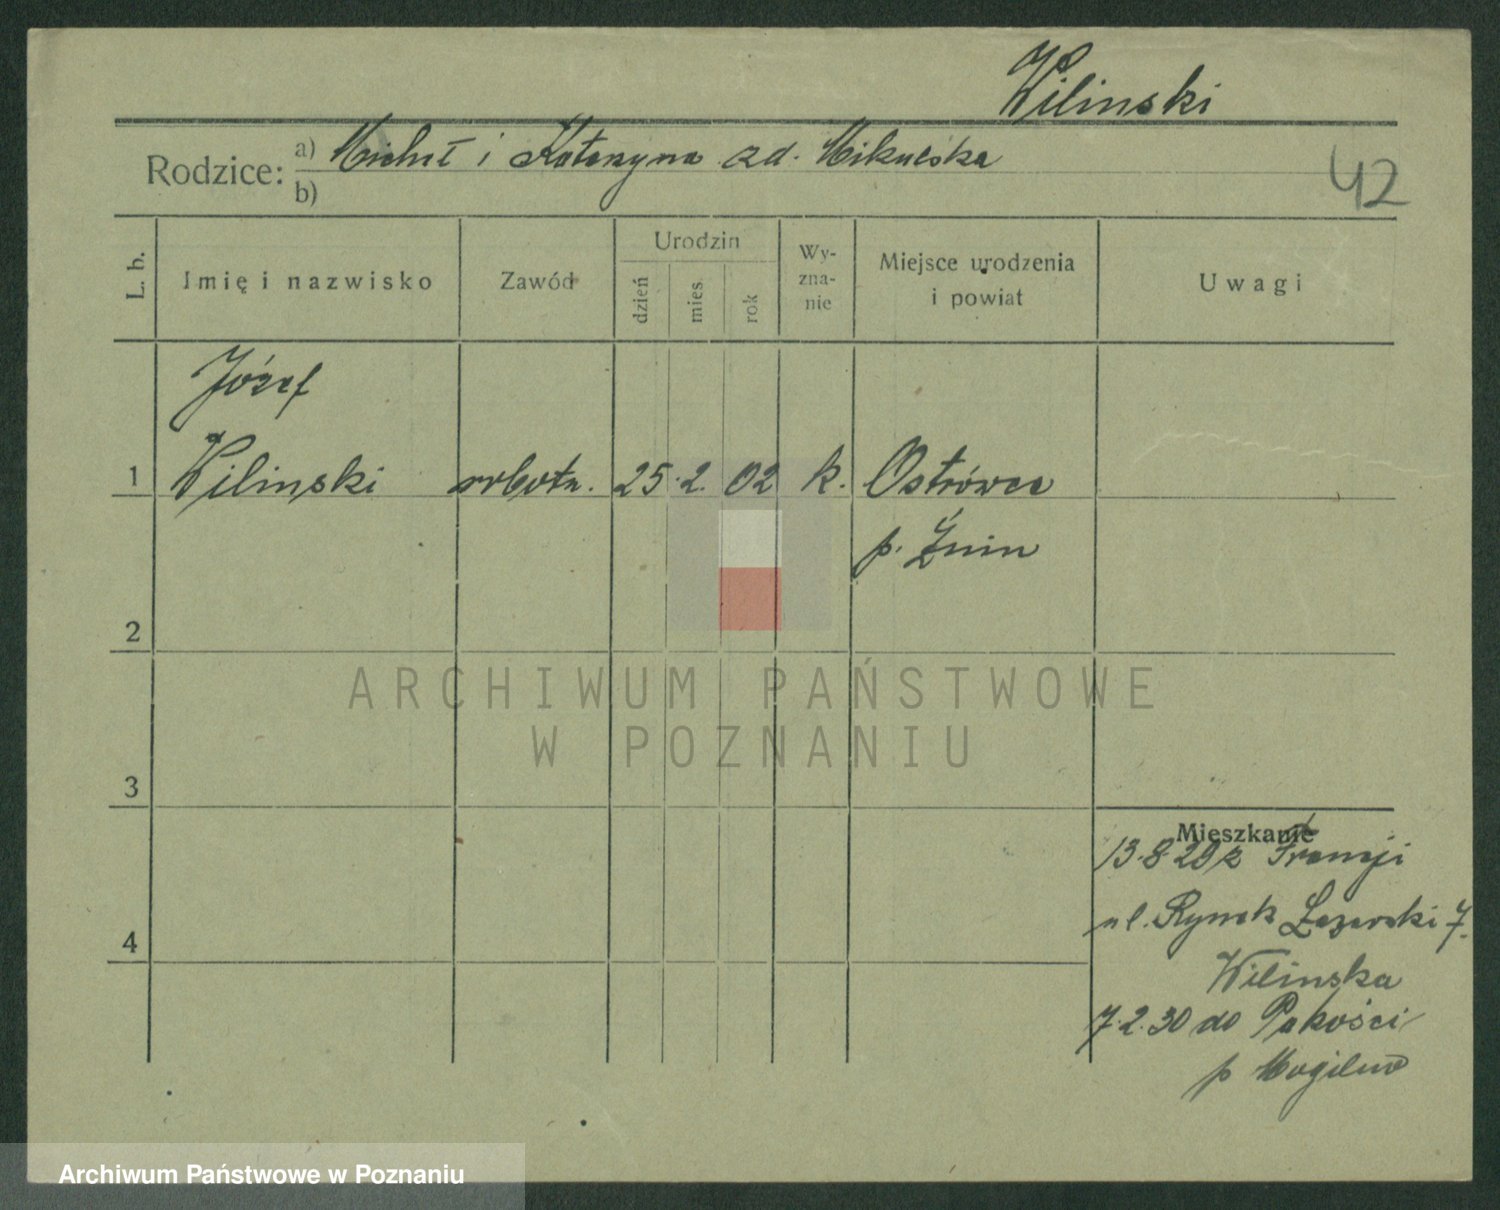 Wilinski
Rodzice: a) Michał i Katarzyna zd. Mikulska
b)
42
L. b.
Imię i nazwisko
Zawód
Urodzin
dzień
mies.
rok
Wy-
zna-
nie
Miejsce urodzenia
i powiat
Uwagi
Józef
1 Wilinski robotn. 25. 2. 02 k. Ostrówce
p. Żnin
2
ARCHIWUM PAŃSTWOWE
W POZNANIU
3
Mieszkanie
13.8.29 z Francji
ul. Rynek Łazarski 7.
4
Wilinska
7.2.30 do Pakości
p Mogilno
Archiwum Państwowe w Poznaniu